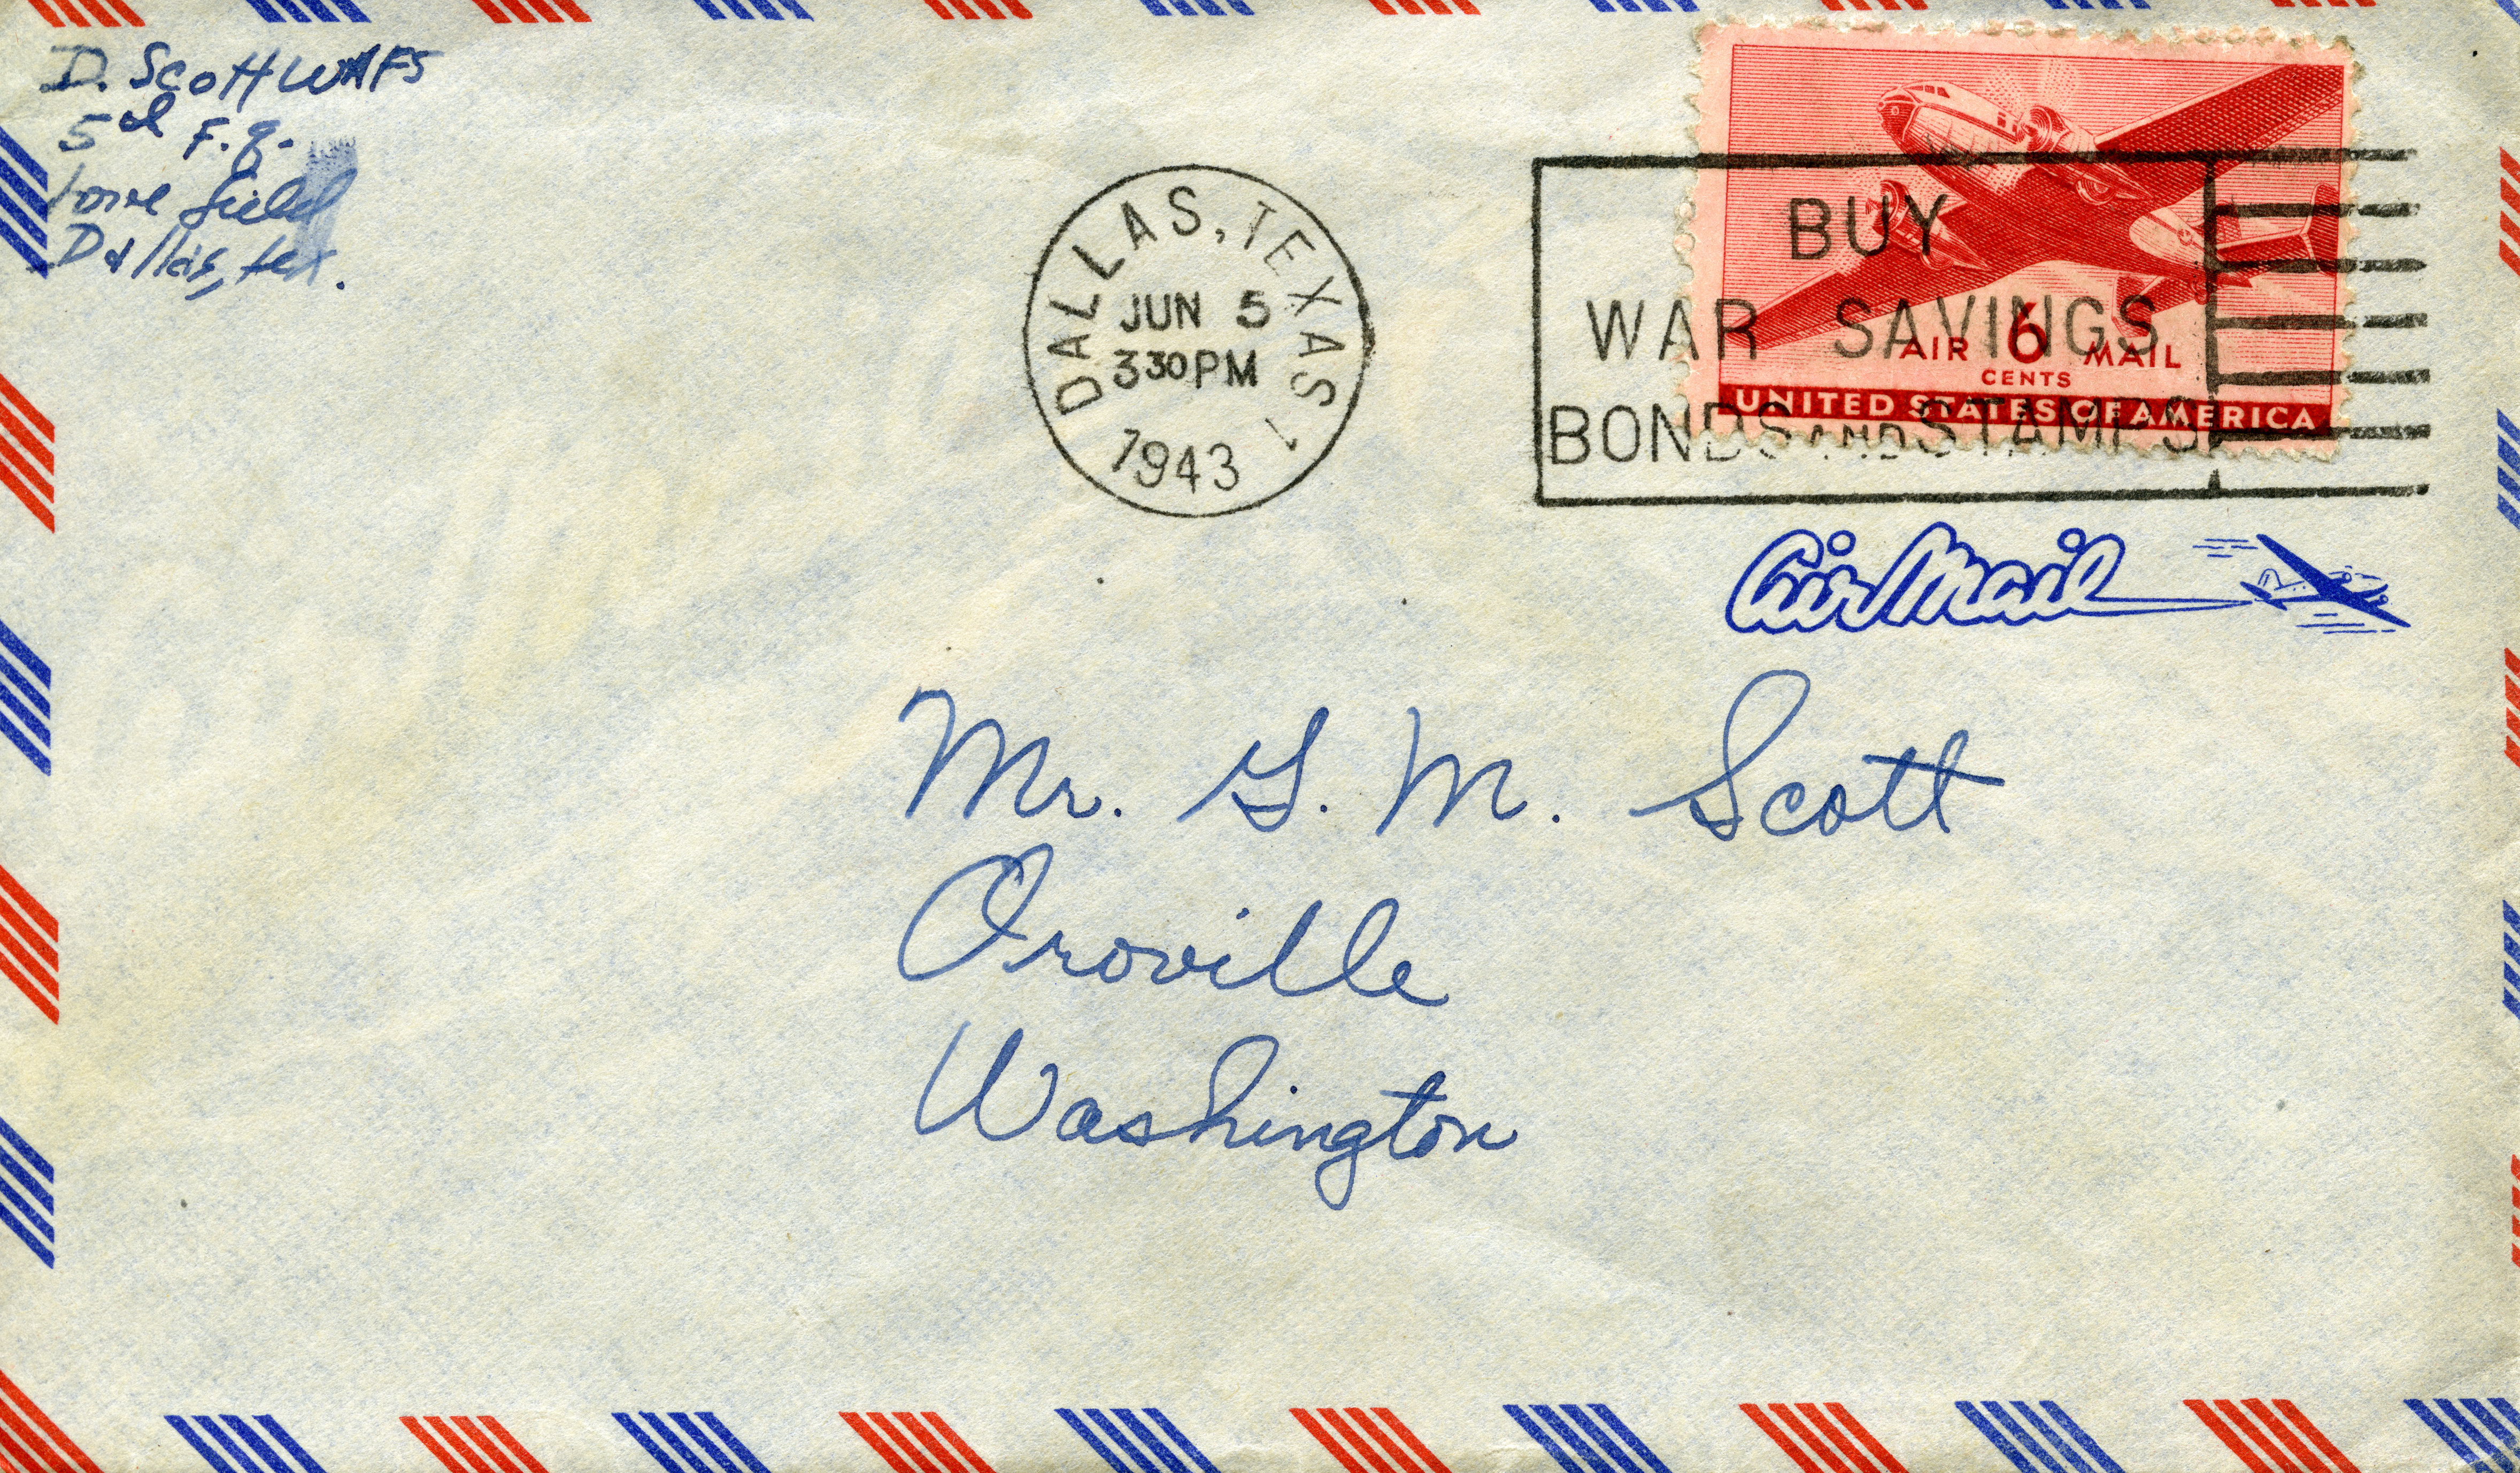 D. Scott WAFS
5d F.g.
Love field
Dallas, tex.
DALLAS, TEXAS 1
JUN 5
330PM
1943
BUY
WAR SAVINGS
BONDS AND STAMPS
AIR 6 MAIL
CENTS
UNITED STATES OF AMERICA
Air Mail
Mr. G. M. Scott
Oroville
Washington